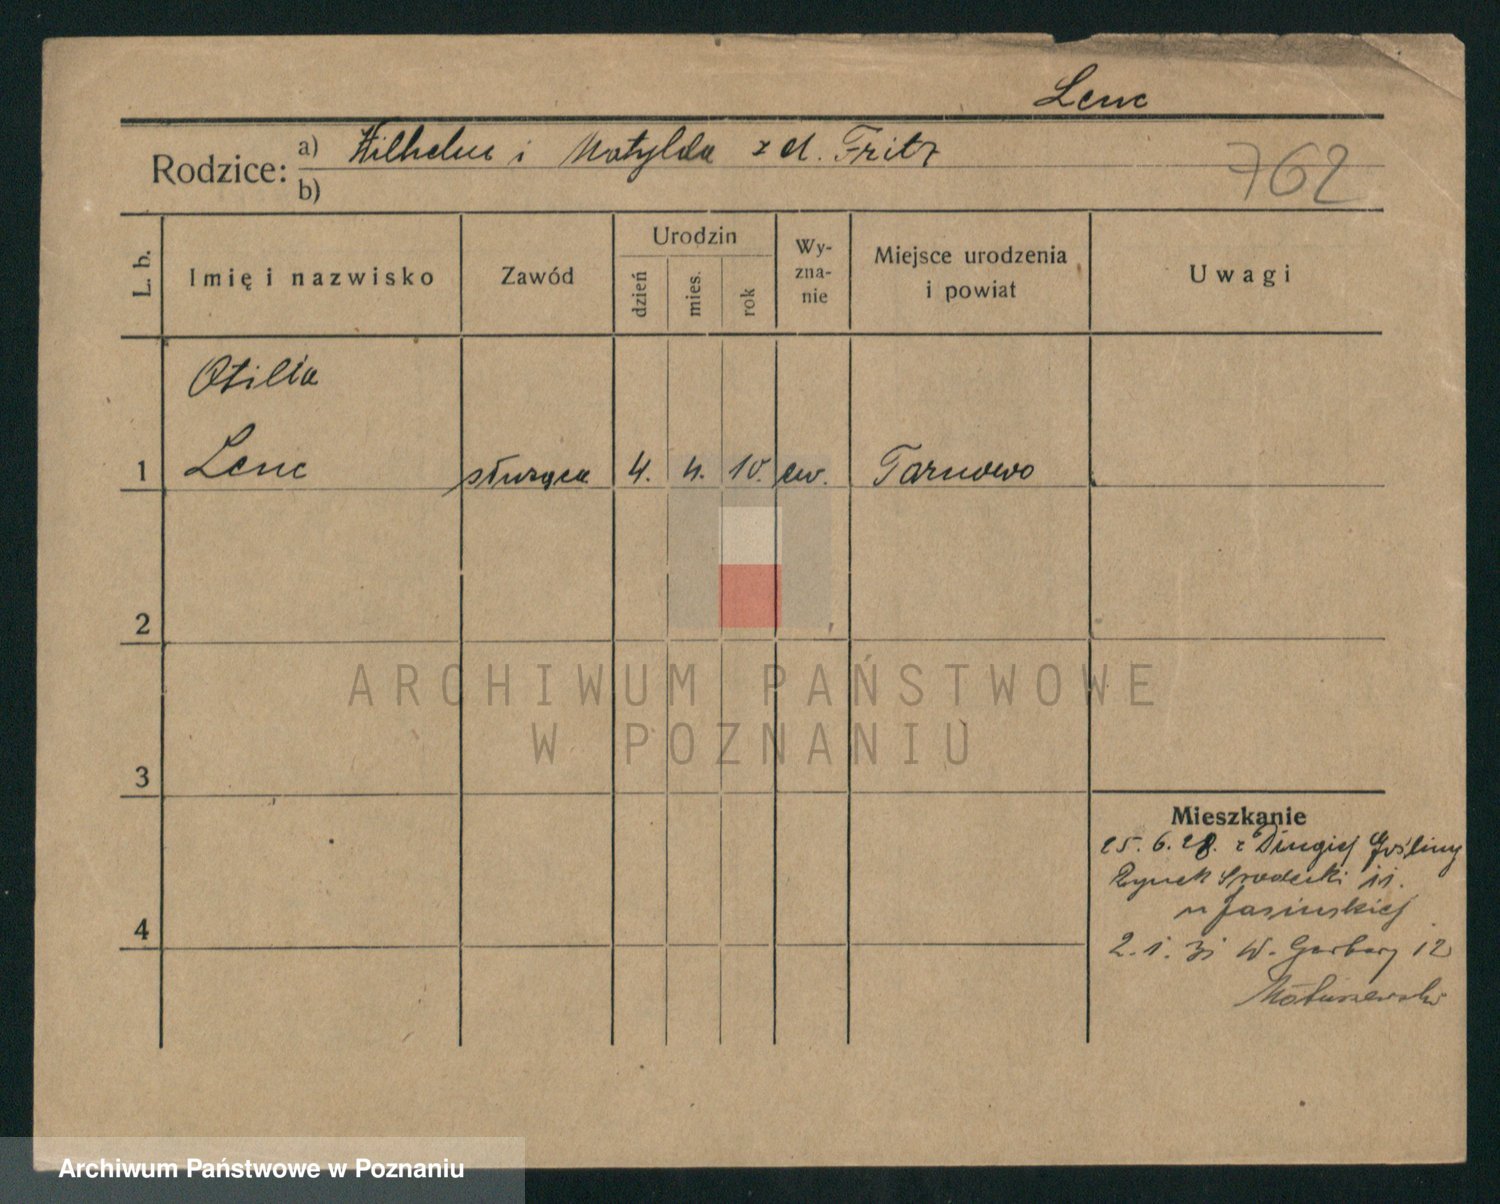 Lenc
Rodzice: a) Wilhelm i Matylda z d. Fritz
b)
762
L. b.
Imię i nazwisko
Zawód
Urodzin
dzień
mies.
rok
Wy-
zna-
nie
Miejsce urodzenia
i powiat
Uwagi
Otilia
1 Lenc służąca 4. 4. 10. ew. Tarnowo
2
3
4
Mieszkanie
25. 6. 28. z Długiej Gośliny
Rynek Śródecki 11.
u Jasińskiej
2. 1. 31 W. Garbary 12
Matuszewski
ARCHIWUM PAŃSTWOWE
W POZNANIU
Archiwum Państwowe w Poznaniu